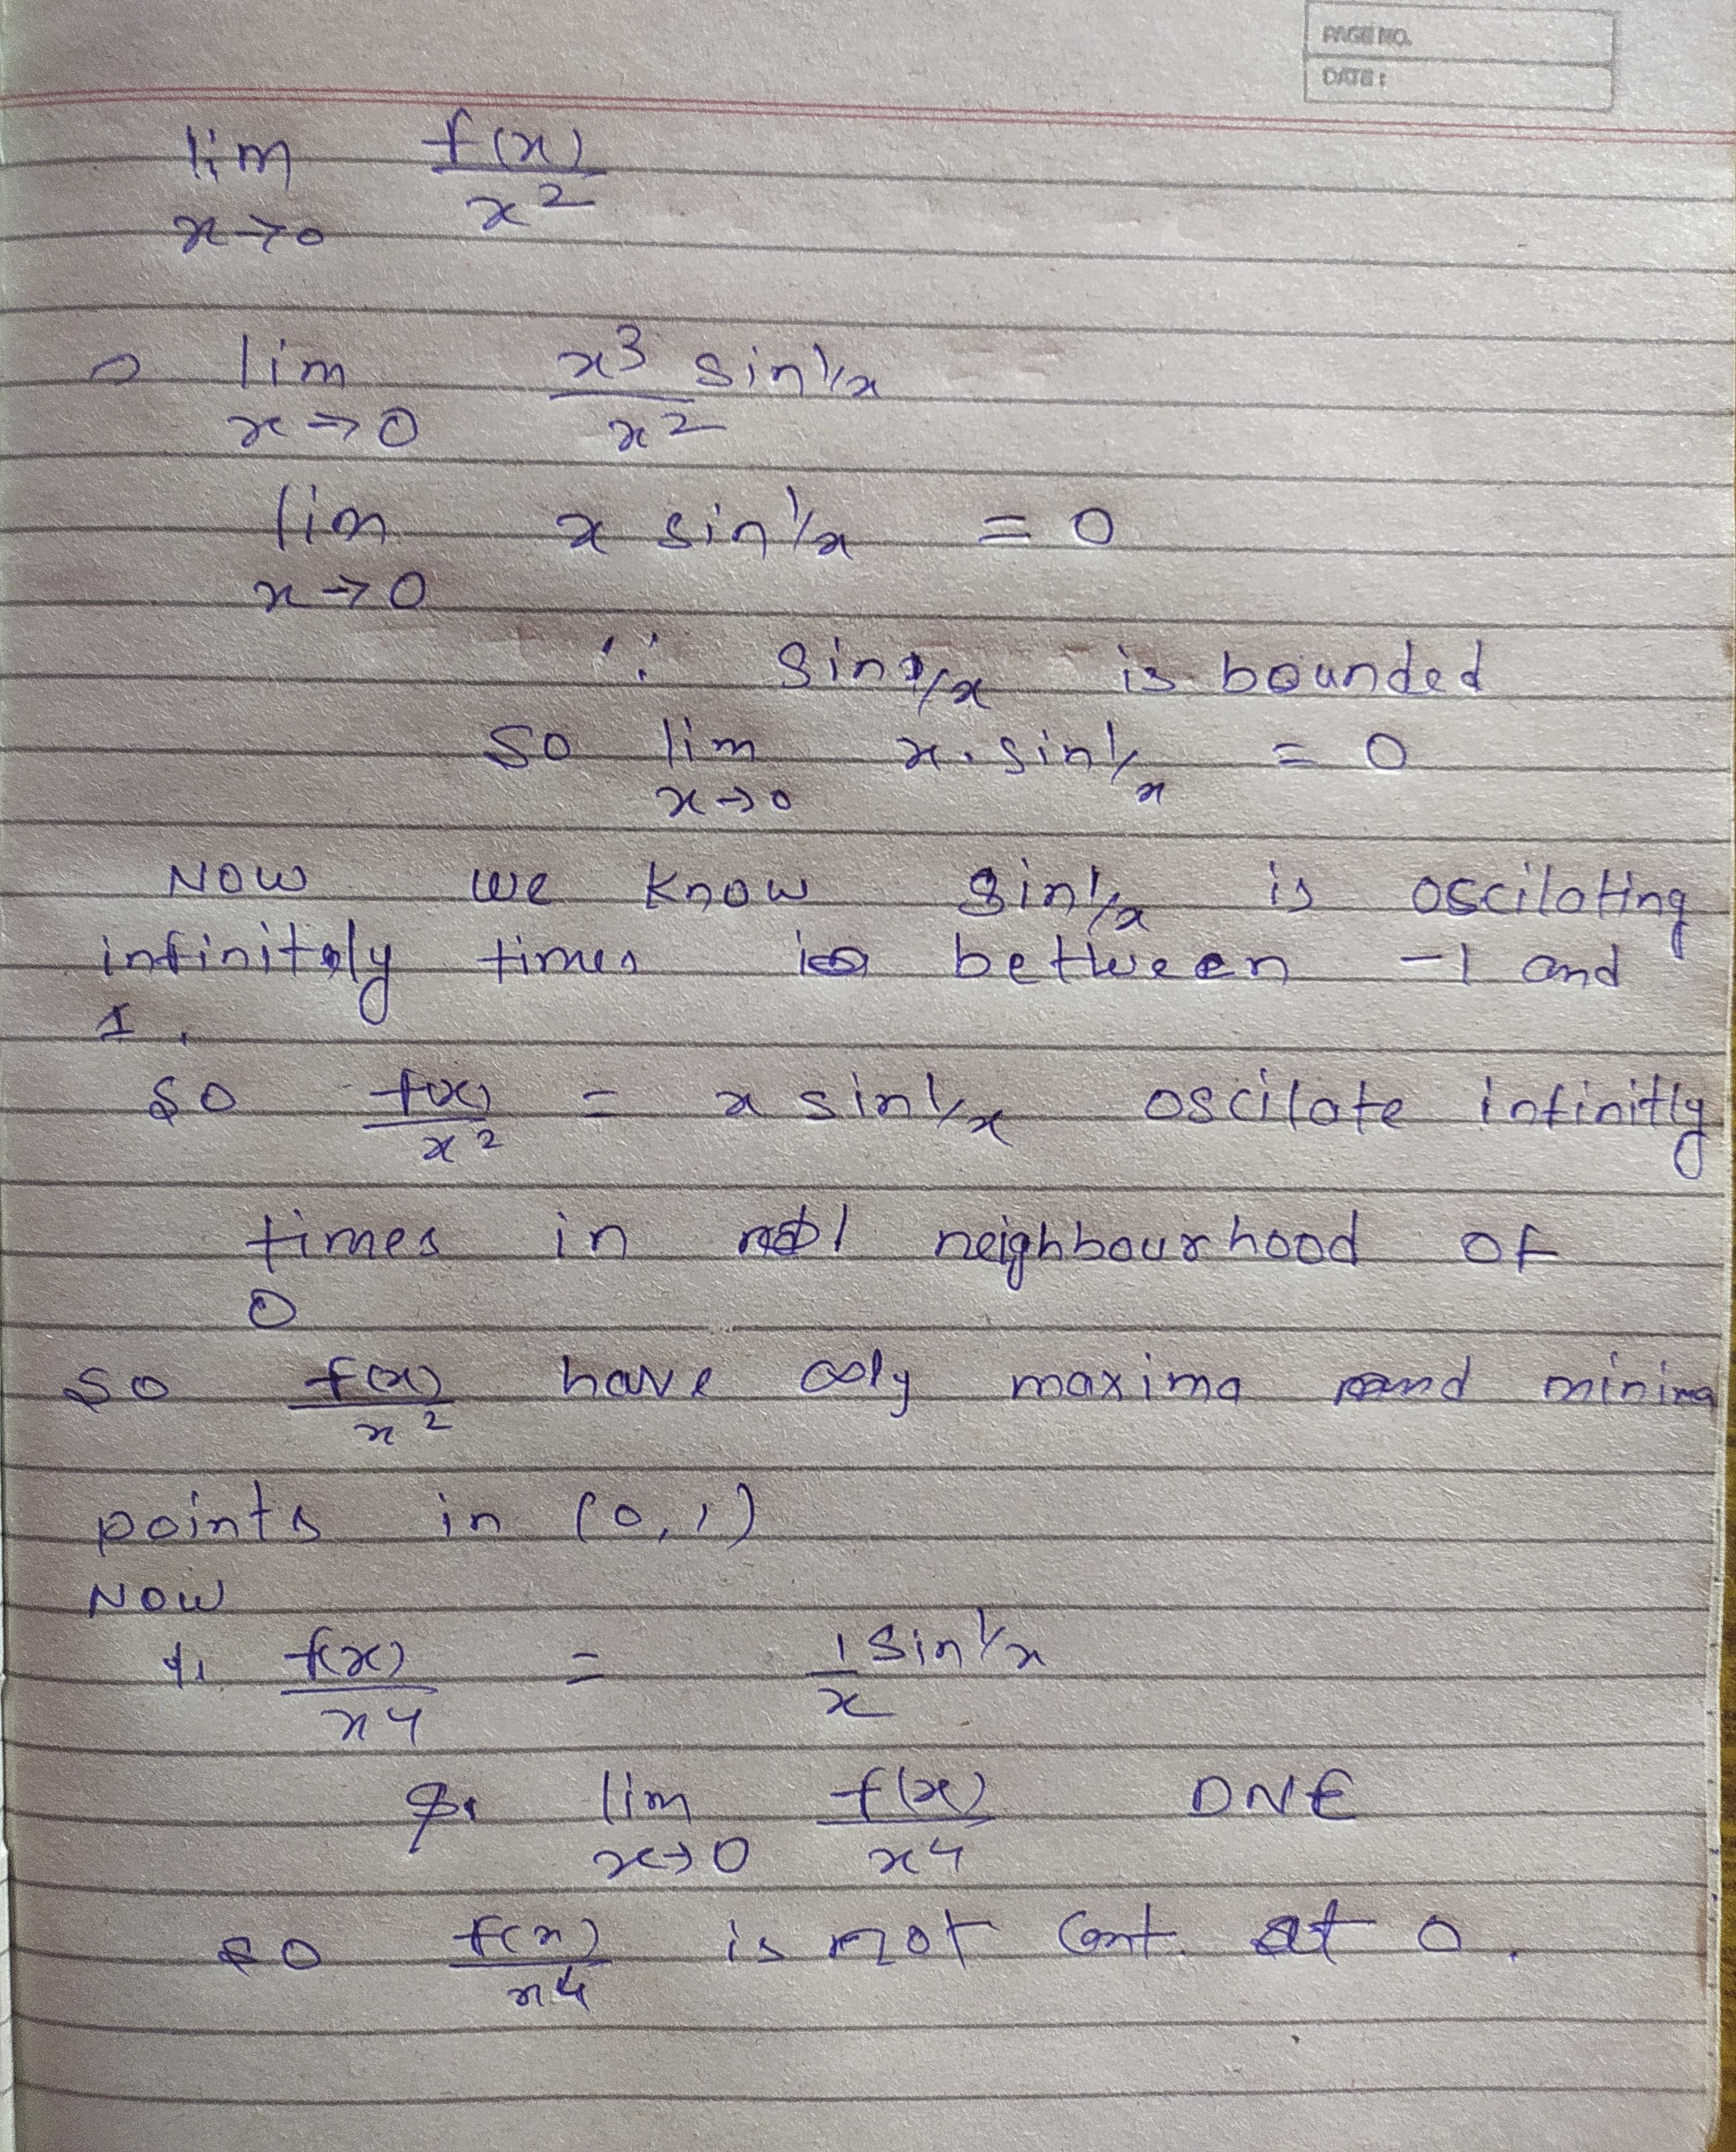 PAGE NO.
DATE :
lim f(x)/x²
x→0
⇒ lim x³ sin 1/x / x²
x→0
lim x sin 1/x = 0
x→0
∵ sin 1/x is bounded
so lim x. sin 1/x = 0
x→0
Now we know sin 1/x is oscilating
infinitely times between -1 and
1.
So f(x)/x² = x sin 1/x oscilate infinitly
times in neighbourhood of
0
so f(x)/x² have maxima and minima
points in (0,1)
Now
f(x)/x4 = 1/x sin 1/x
lim f(x)/x4 DNE
x→0
so f(x)/x4 is not Cont. at 0.